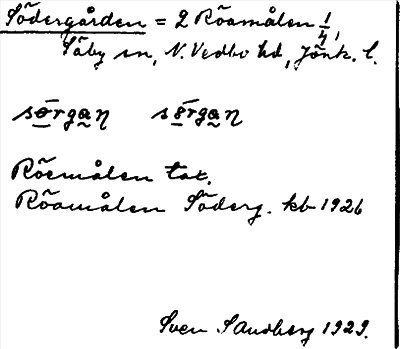 Södergården = 2 Röamålen 1/4,
Säby sn, N. Vedbo hd, Jönk. l.
sørgaɳ sørgaɳ
Röemålen tax.
Röamålen Söderg. kb 1926
Sven Sandberg 1929.